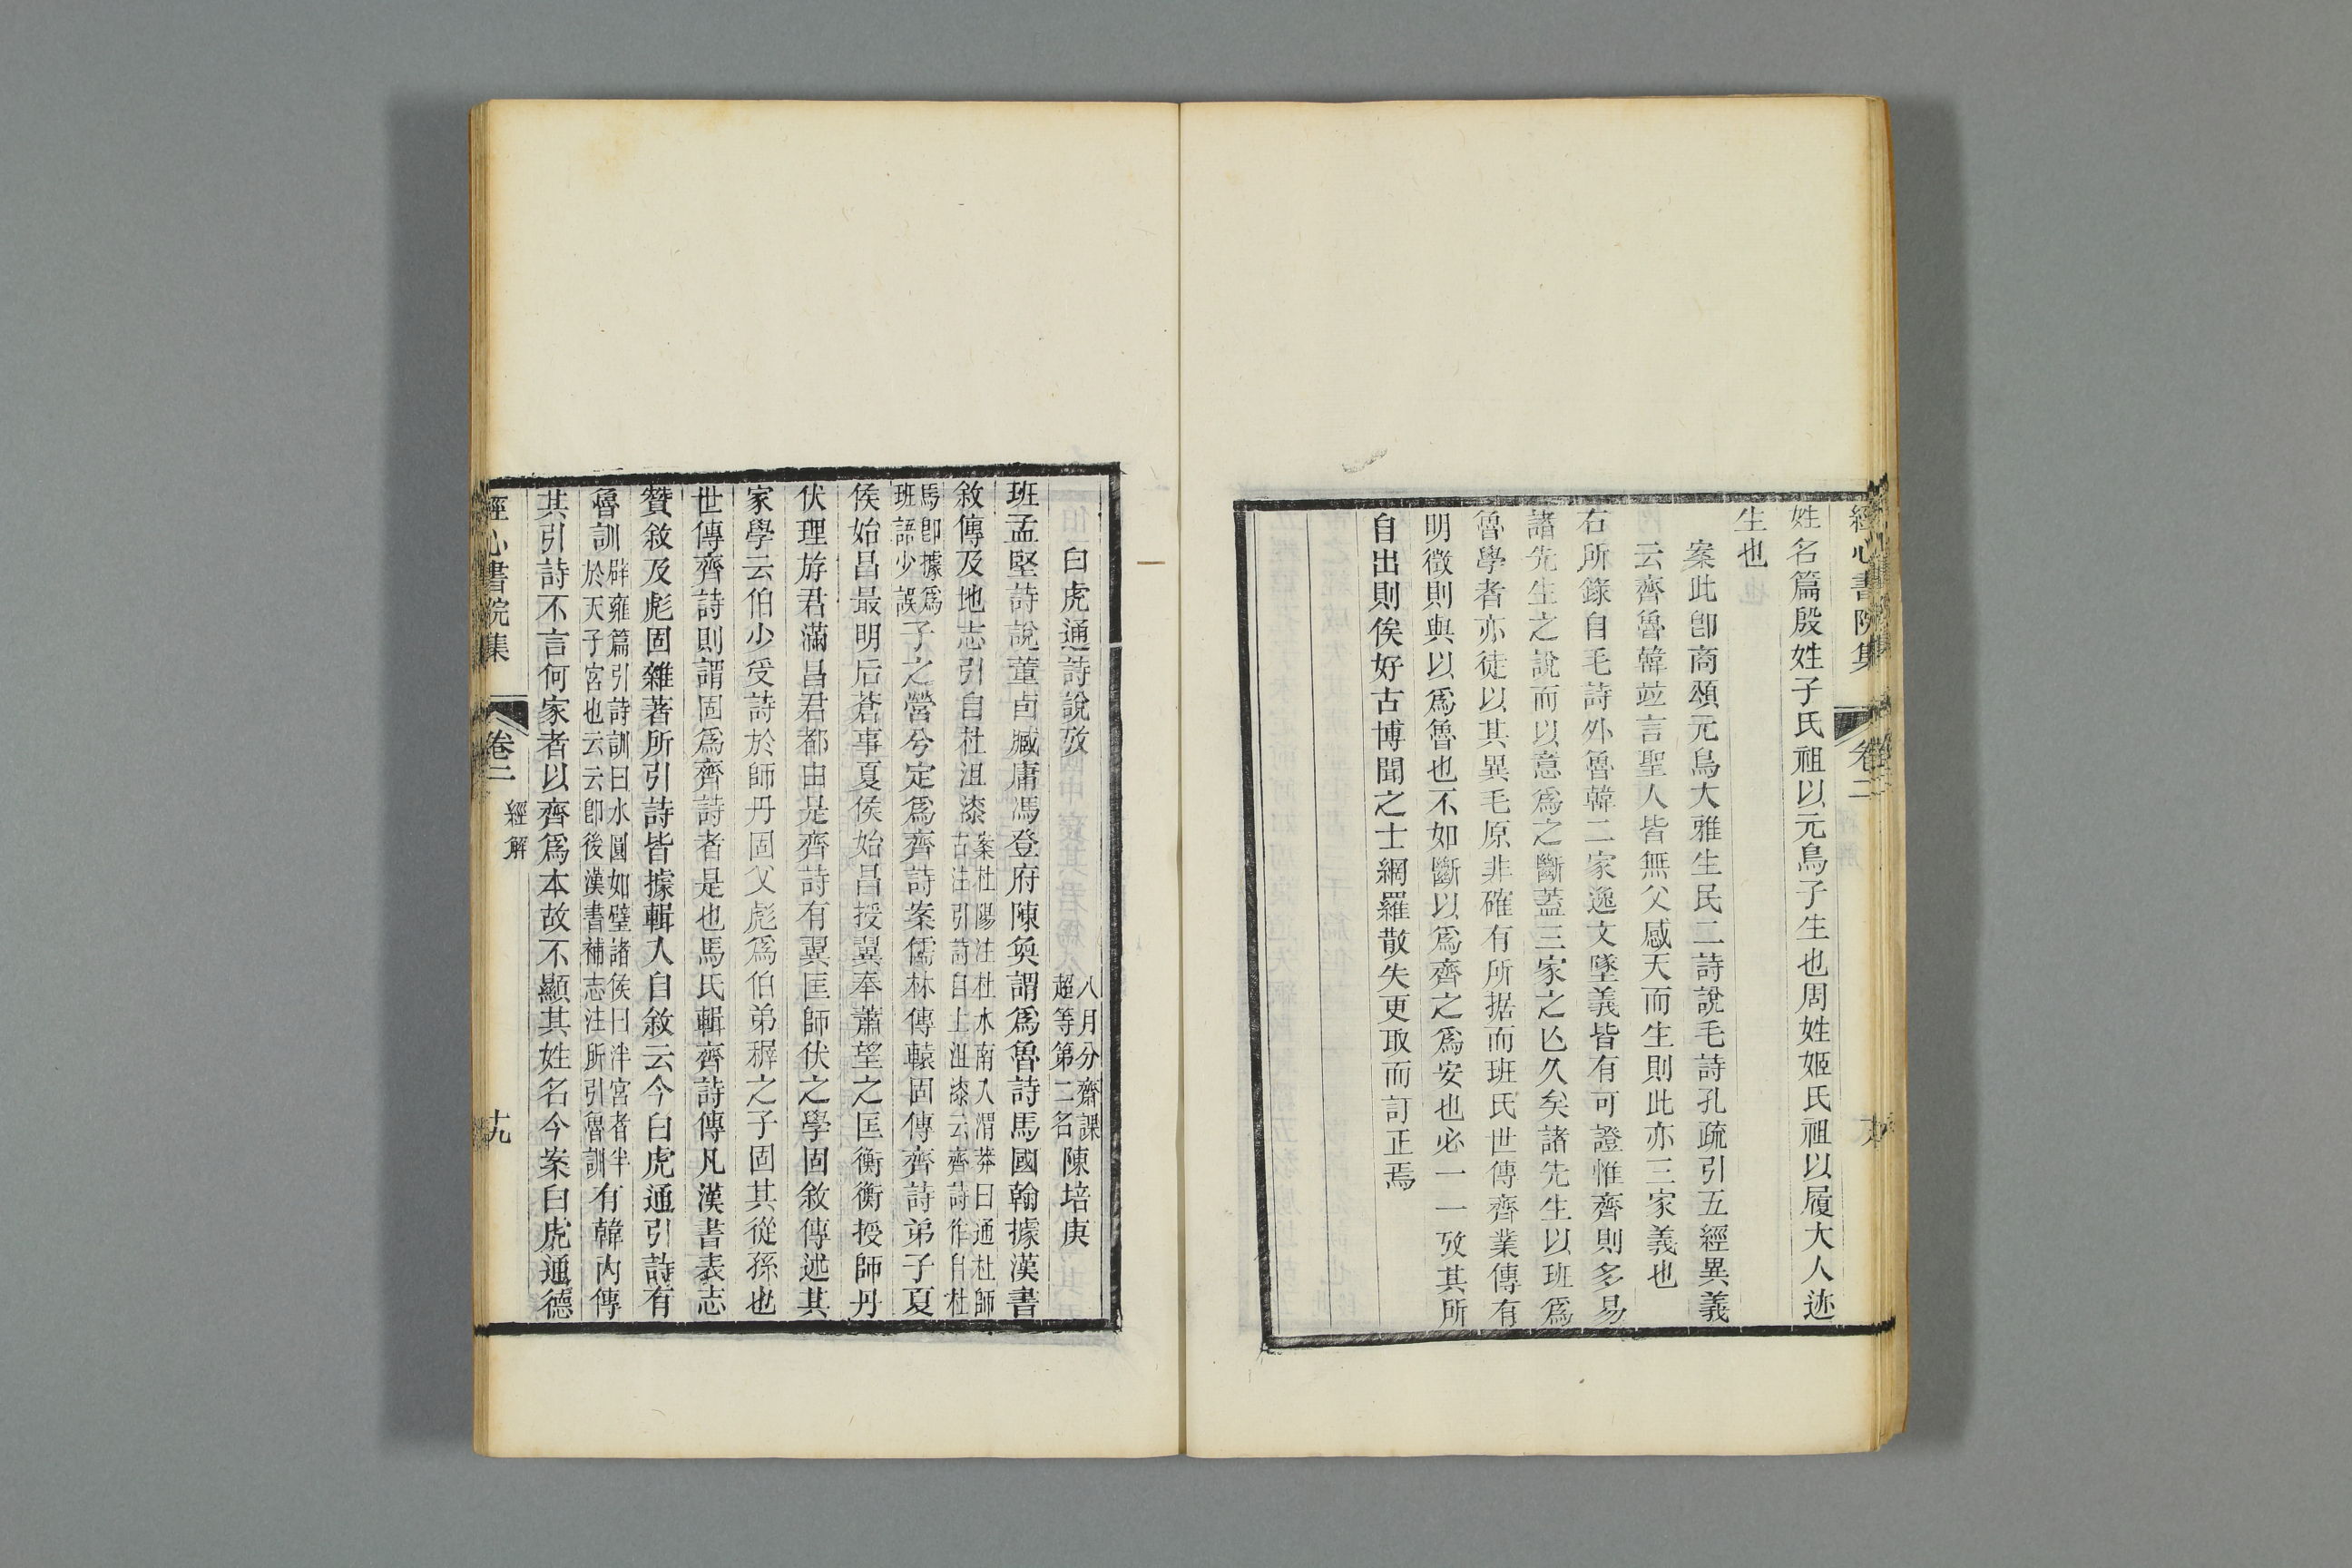 經心書院集
卷二
姓名篇殷姓子氏祖以元鳥子生也周姓姬氏祖以履大人迹
生也
案此卽商頌元鳥大雅生民二詩說毛詩孔疏引五經異義
云齊魯韓竝言聖人皆無父感天而生則此亦三家義也
右所錄自毛詩外魯韓二家逸文墜義皆有可證惟齊則多易
諸先生之說而以意爲之斷蓋三家之亾久矣諸先生以班爲
魯學者亦徒以其異毛原非確有所据而班氏世傳齊業傳有
明徵則與以爲魯也不如斷以爲齊之爲安也必一一攷其所
自出則俟好古博聞之士網羅散失更取而訂正焉
白虎通詩說攷
八月分齋課
超等第二名
陳培庚
班孟堅詩說董卣臧庸馮登府陳奐謂爲魯詩馬國翰據漢書
敘傳及地志引自杜沮漆
案杜陽注杜水南入渭莽曰通杜師
古注引詩自土沮漆云齊詩作自杜
馬卽據爲
班語少誤
子之營兮定爲齊詩案儒林傳轅固傳齊詩弟子夏
侯始昌最明后蒼事夏侯始昌授翼奉蕭望之匡衡衡授師丹
伏理斿君滿昌君都由是齊詩有翼匡師伏之學固敘傳述其
家學云伯少受詩於師丹固父彪爲伯弟穉之子固其從孫也
世傳齊詩則謂固爲齊詩者是也馬氏輯齊詩傳凡漢書表志
贊敘及彪固雜著所引詩皆據輯入自敘云今白虎通引詩有
魯訓
辟雍篇引詩訓曰水圓如璧諸侯曰泮宮者半
於天子宮也云云卽後漢書補志注所引魯訓
有韓內傳
其引詩不言何家者以齊爲本故不顯其姓名今案白虎通德
經心書院集
卷二
經解
十九